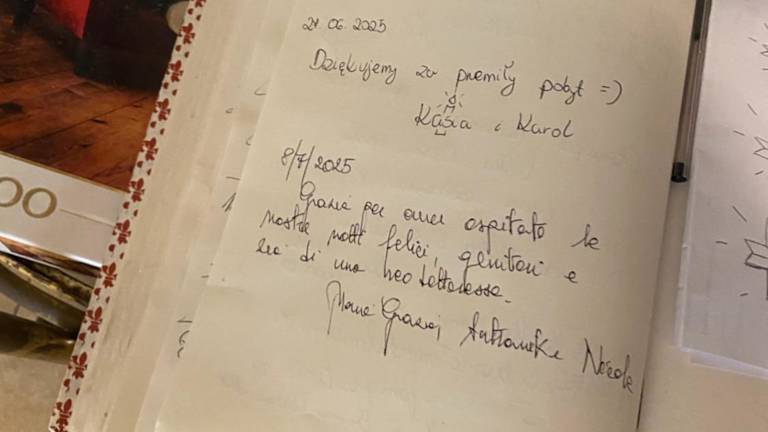 21.06.2025
Dziękujemy za premiły pobyt =)
Kasia i Karol
8/7/2025
Grazie per aver ospitato le
nostre notti felici, genitori e
di una neo dottoressa.
Maria Grazia, Nicola
OO